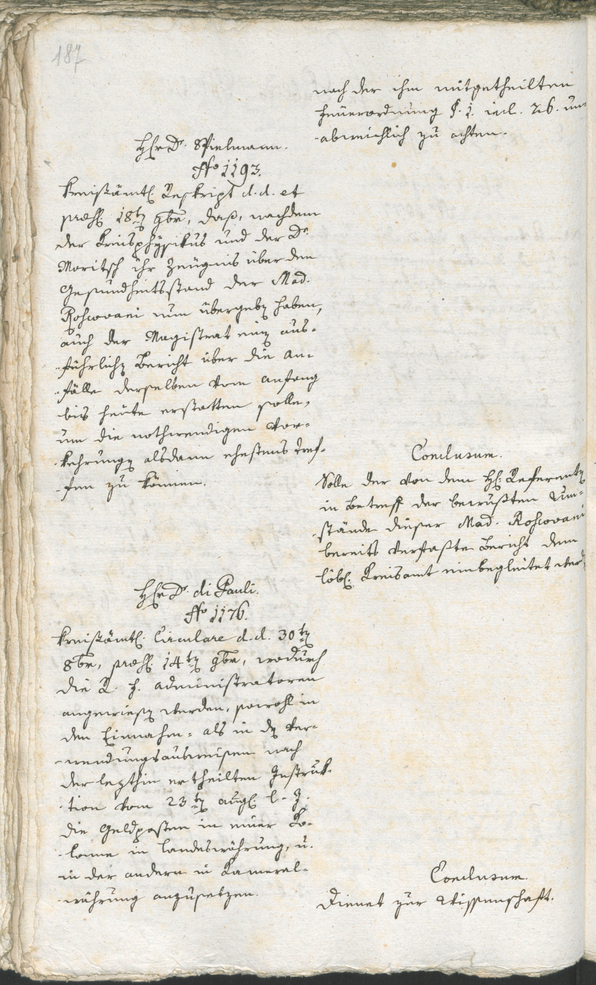 187
nach der ihm mitgetheilten
Feuerordnung §. 1. incl. 26. und
abweichlich zu achten.
Hhr Dr. Spielmann.
No 1193.
Kreisämtl. Reskript d. d. et
præs. 18ten 9br, daß, nachdem
der Kreisphysikus und der Dr
Moritsch ihr Zeugnis über den
Gesundheitsstand der Mad.
Roscovani nun übergeben haben,
auch der Magistrat einen aus-
führlichen Bericht über die An-
fälle derselben vom anfang
bis heute erstatten solle,
um die nothwendigen Vor-
kehrungen alsdann ehestens tref-
fen zu können.
Conclusum.
Solle der von dem Hh: Referenten
in Betreff der bewußten Um-
stände dieser Mad. Roscovani
bereits verfaßte Bericht dem
löbl. Kreisamt einbegleitet werden
Hhr Dr. di Pauli.
No 1176.
Kreisämtl. Circulare d. d. 30ten
8br, præs. 14ten 9br, wodurch
die administratoren
angewiesen werden, sowohl in
den Einnahm- als in den Ver-
wendungsausweisen nach
der lezthin ertheilten Instruk-
tion vom 23ten augl. l. J.
die Geldposten in einer Ko-
lonne in Landeswährung, u.
in der andern in Kameral-
währung anzusetzen.
Conclusum.
Dienet zur Wissenschaft.